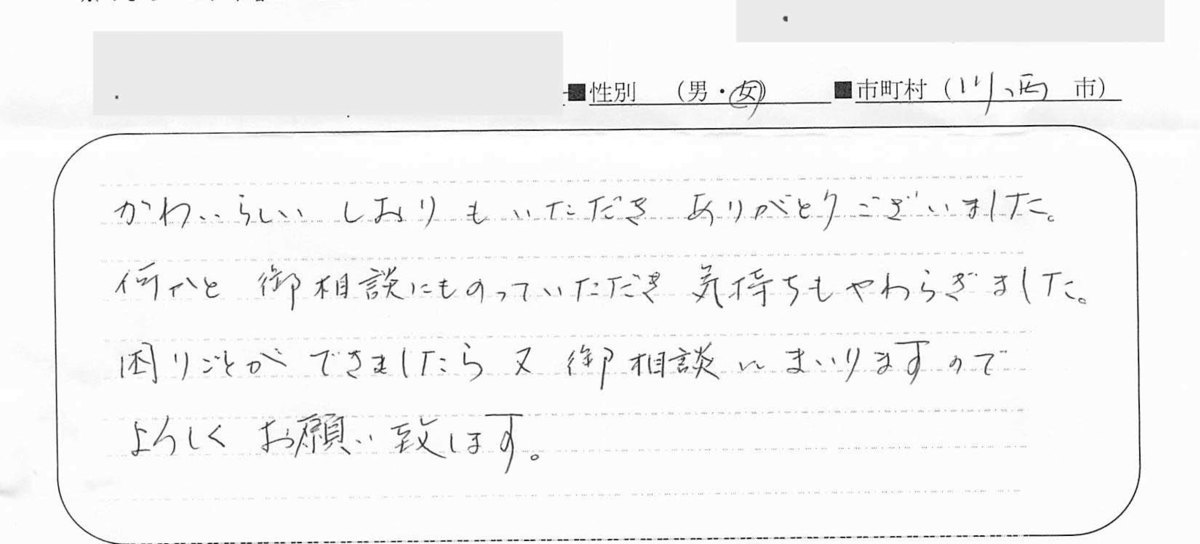 ■性別 （男・女） ■市町村（川西 市）
かわいらしい しおりも いただき ありがとうございました。
何かと 御相談にものっていただき 気持ちもやわらぎました。
困りごとが できましたら 又 御相談にまいりますので
よろしく お願い致します。